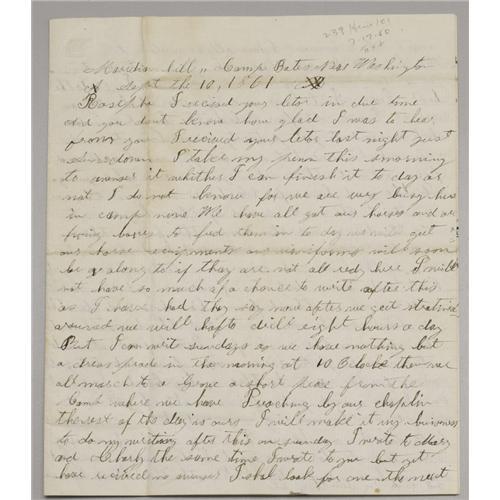 Meridian hill " Camp Bates Near Washington
Sept the 10, 1861
I recieved your leter in due time
and you dont know how glad I was to hear
from you I recieved your leter last night just
I take my pen this morning
to answer it whither I can finish it to day or
not I do not know for we are very busy here
in camp now We have all got our horses and are
fixing boxes to feed them in to day we will get
our horse equipments our uniforms will soon
be along to if they are not all red, here I will
not have so much of a chance to write after this
as I have had they say now after we get
around we will hafto drill eight hours a day
But I can writ sundays as we have nothing but
a dress prade in the morning at 10 O Clock then we
all march to a Grove a short peace from the
Camp where we have Preaching by our chaplin
the rest of the day is ours I will make it my buisness
to do my writing after this on sunday I wrote to Mary
and the same time I wrote to you but yet
have recieved no answer I shal look for one the next